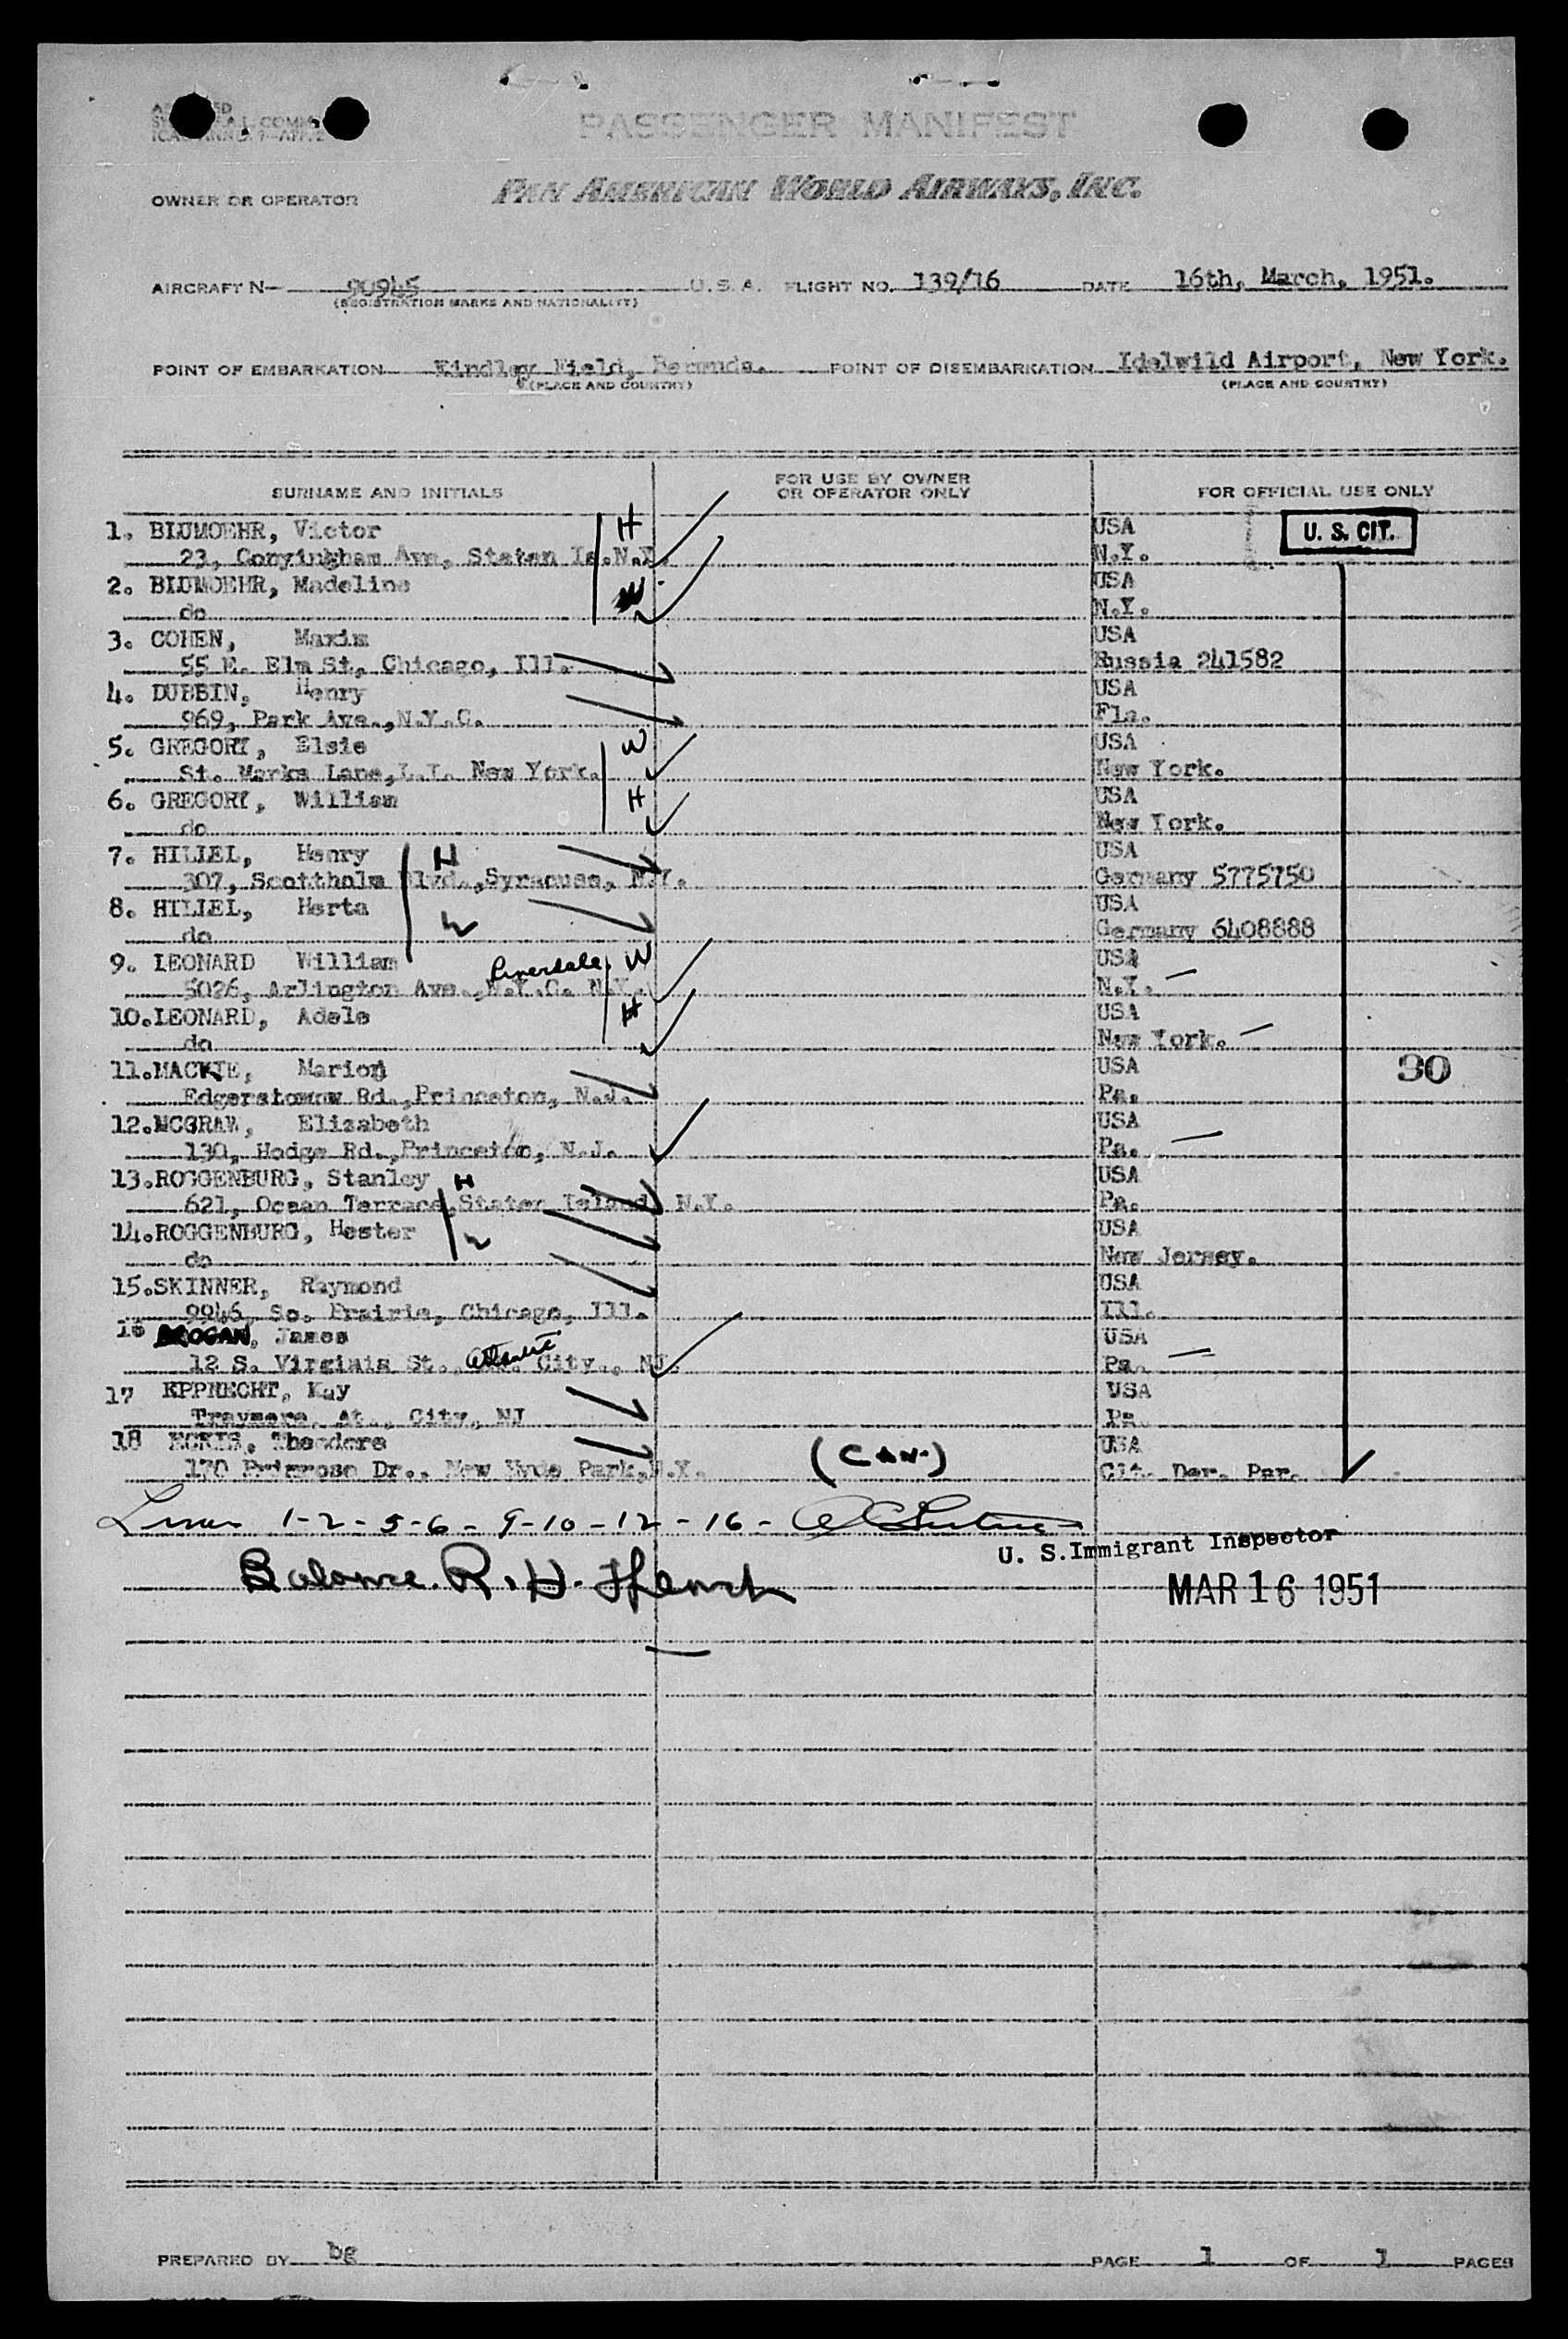 PASSENGER MANIFEST
OWNER OR OPERATOR PAN AMERICAN WORLD AIRWAYS, INC.
AIRCRAFT N- 90945 U.S.A. FLIGHT NO. 139/16 DATE 16th, March, 1951.
(REGISTRATION MARKS AND NATIONALITY)
POINT OF EMBARKATION Kindley Field, Bermuda. POINT OF DISEMBARKATION Idelwild Airport, New York.
(PLACE AND COUNTRY) (PLACE AND COUNTRY)
SURNAME AND INITIALS FOR USE BY OWNER OR OPERATOR ONLY FOR OFFICIAL USE ONLY
1. BLUMOEHR, Victor H USA U. S. CIT.
23, Conyingham Ave, Staten Is.N.Y. N.Y.
2. BLUMOEHR, Madeline W USA
do N.Y.
3. COHEN, Maxim USA
55 E. Elm St, Chicago, Ill. Russia 241582
4. DUBBIN, Henry USA
969, Park Ave.,N.Y.C. Fla.
5. GREGORY, Elsie W USA
St. Marks Lane,L.I. New York. New York.
6. GREGORY, William H USA
do New York.
7. HILLEL, Henry H USA
307, Scottholm Blvd.,Syracuse, N.Y. Germany 5775750
8. HILLEL, Herta W USA
do Germany 6408888
9. LEONARD William W USA
5026, Arlington Ave.,N.Y.C. N.Y. Riverdale N.Y.
10.LEONARD, Adele H USA
do New York.
11.MACKIE, Marion USA 30
Edgerstomow Rd.,Princeton, N.J. Pa.
12.MCGRAW, Elizabeth USA
130, Hodge Rd.,Princeton, N.J. Pa.
13.ROGGENBURG, Stanley H USA
621, Ocean Terrace,Staten Island, N.Y. Pa.
14.ROGGENBURG, Hester W USA
do New Jersey.
15.SKINNER, Raymond USA
9946, So. Prairie, Chicago, Ill. Ill.
16 BROGAN, James USA
12 S. Virginia St., Atlantic City., NJ. Pa.
17 EPPRECHT, Kay USA
Traymore, At., City, NJ Pa.
18 ECKIS, Theodore USA
170 Primrose Dr., New Hyde Park,N.Y. (CAN.) Cit. Der. Par.
1-2-5-6-9-10-12-16-
U. S. Immigrant Inspector
Balance. R. H.
MAR 16 1951
PREPARED BY bg PAGE 1 OF 1 PAGES